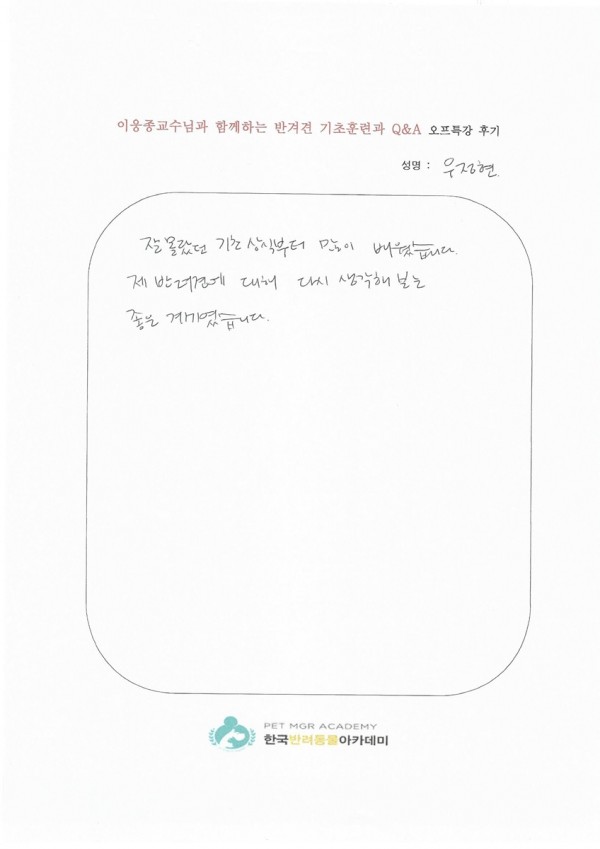 이웅종교수님과 함께하는 반겨견 기초훈련과 Q&A 오프특강 후기
성명 : 우정현.
잘 몰랐던 기초 상식부터 많이 배웠습니다.
제 반려견에 대해 다시 생각해 보는
좋은 계기였습니다.
PET MGR ACADEMY
한국반려동물아카데미